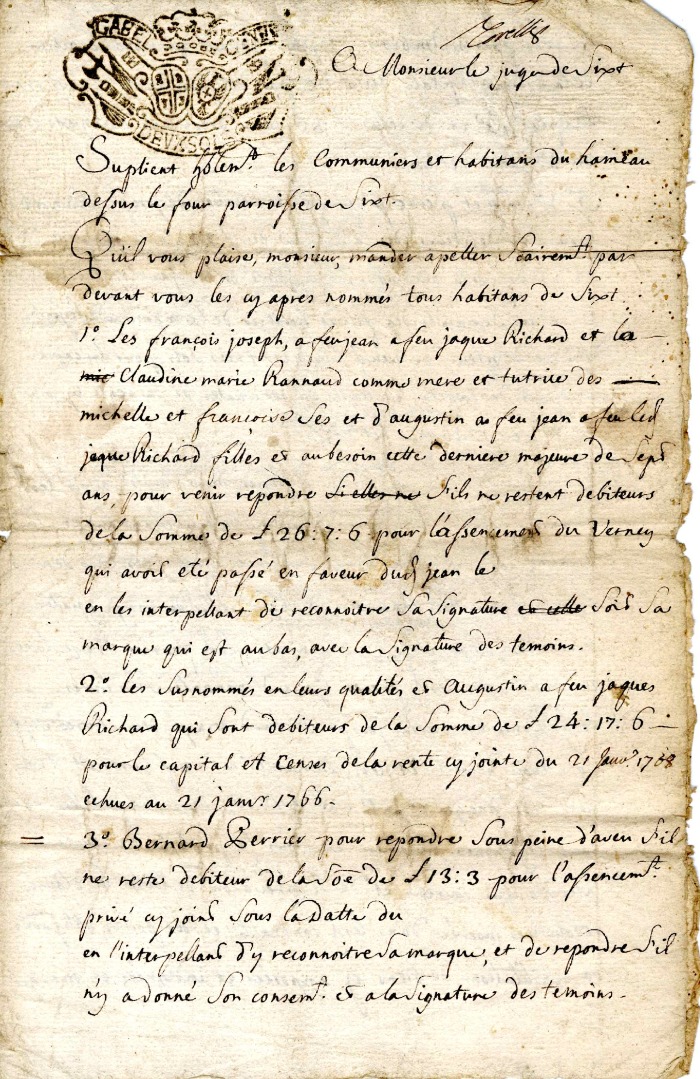 GABEL GENER
DEUX SOLS
A Monsieur le juge de Sixt
Suplient hblemt. les Communiers et habitans du hameau
dessus le four parroisse de Sixt.
Qu'il vous plaise, monsieur, mander apeller Scairemt. par
devant vous les cy apres nommés tous habitans de Sixt
1o. Les françois joseph, a feu jean a feu jaque Richard et la
Claudine marie Rannaud comme mere et tutrice des
michelle et françoise Ses et d'augustin a feu jean a feu led
jaque Richard filles et au besoin cette derniere majeure de Sept
ans, pour venir repondre Si elles ne S'ils ne restent debiteurs
de la Somme de £ 26 : 7 : 6 pour l'assencement du Verney
qui avoit eté passé en faveur dud jean le
en les interpellant de reconnoitre Sa Signature et celle Soit Sa
marque qui est au bas, avec la Signature des temoins.
2o. les Susnommés en leurs qualités et augustin a feu jaques
Richard qui Sont debiteurs de la Somme de £ 24 : 17 : 6
pour le capital et Censes de la rente cy jointe du 21 janvr. 1768
echues au 21 janvr 1766.
= 3o. Bernard Perrier pour repondre Sous peine d'aveu S'il
ne reste debiteur de la Soe de £ 13 : 3 pour l'assencemt.
privé cy joint Sous la Datte du
en l'interpellant d'y reconnoitre Sa marque, et de repondre S'il
n'y a donné Son consemt. et a la Signature des temoins.